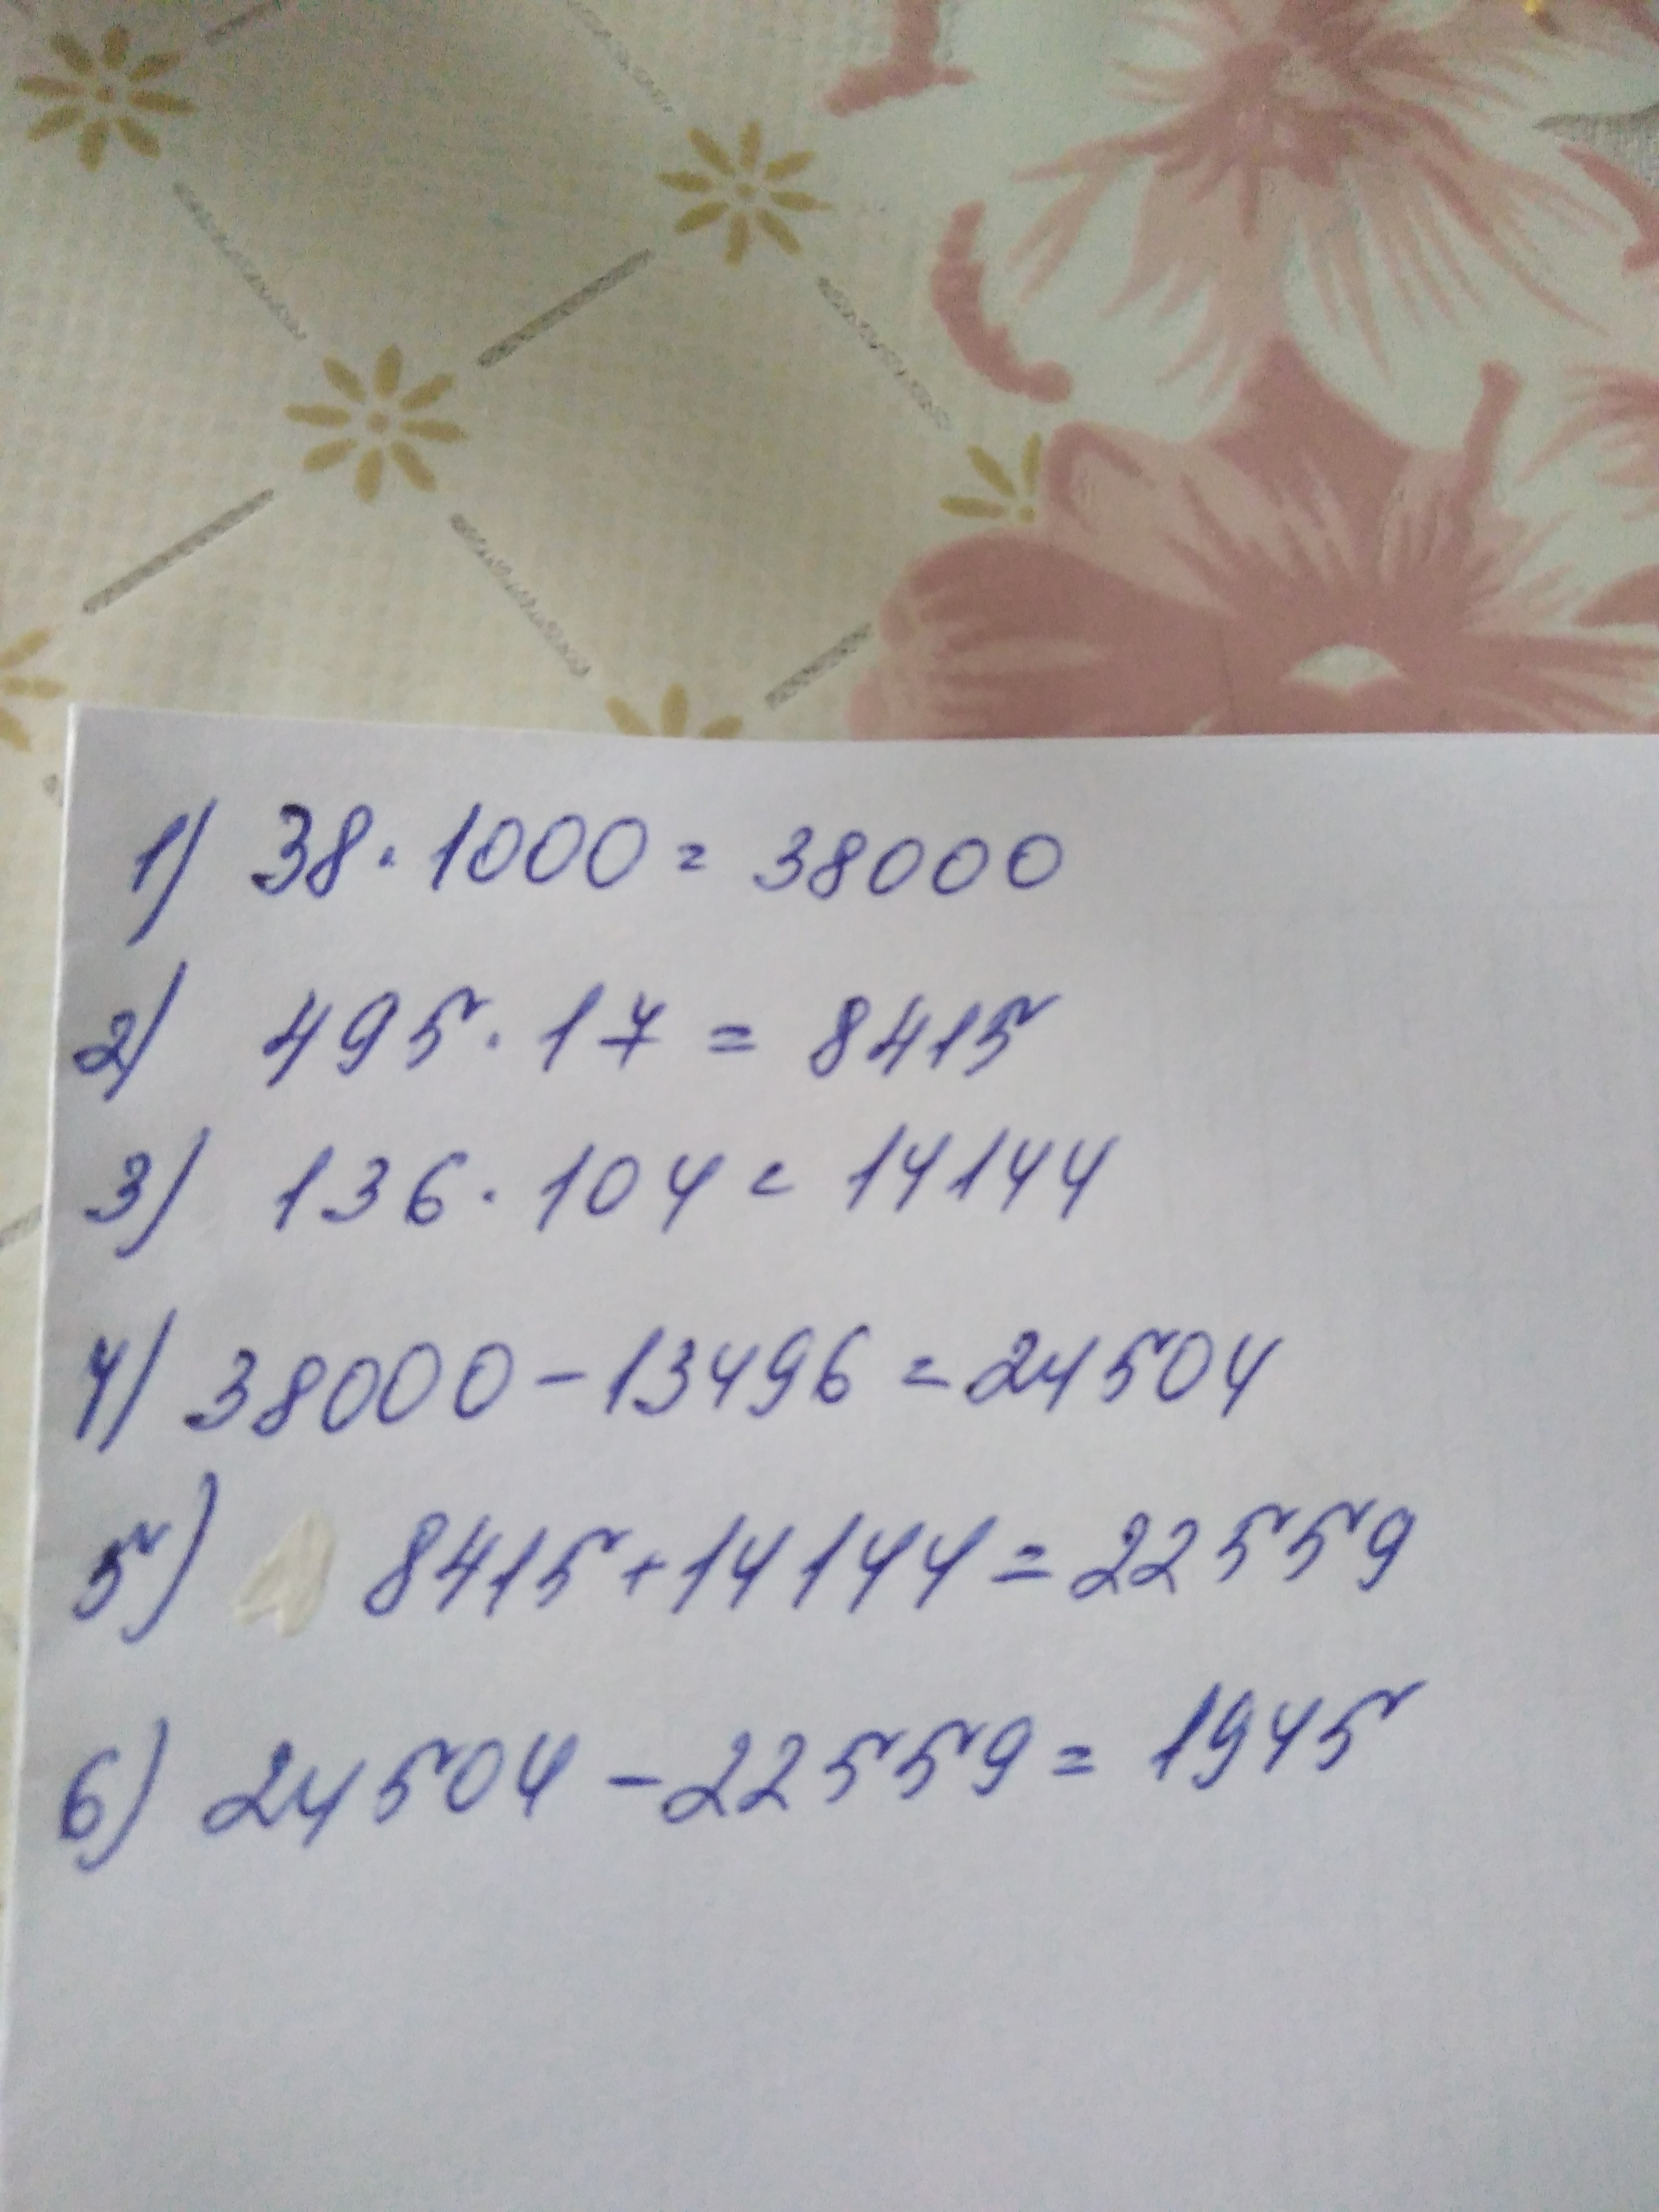 1) 38 · 1000 = 38000
2) 495 · 17 = 8415
3) 136 · 104 = 14144
4) 38000 - 13496 = 24504
5) 8415 + 14144 = 22559
6) 24504 - 22559 = 1945